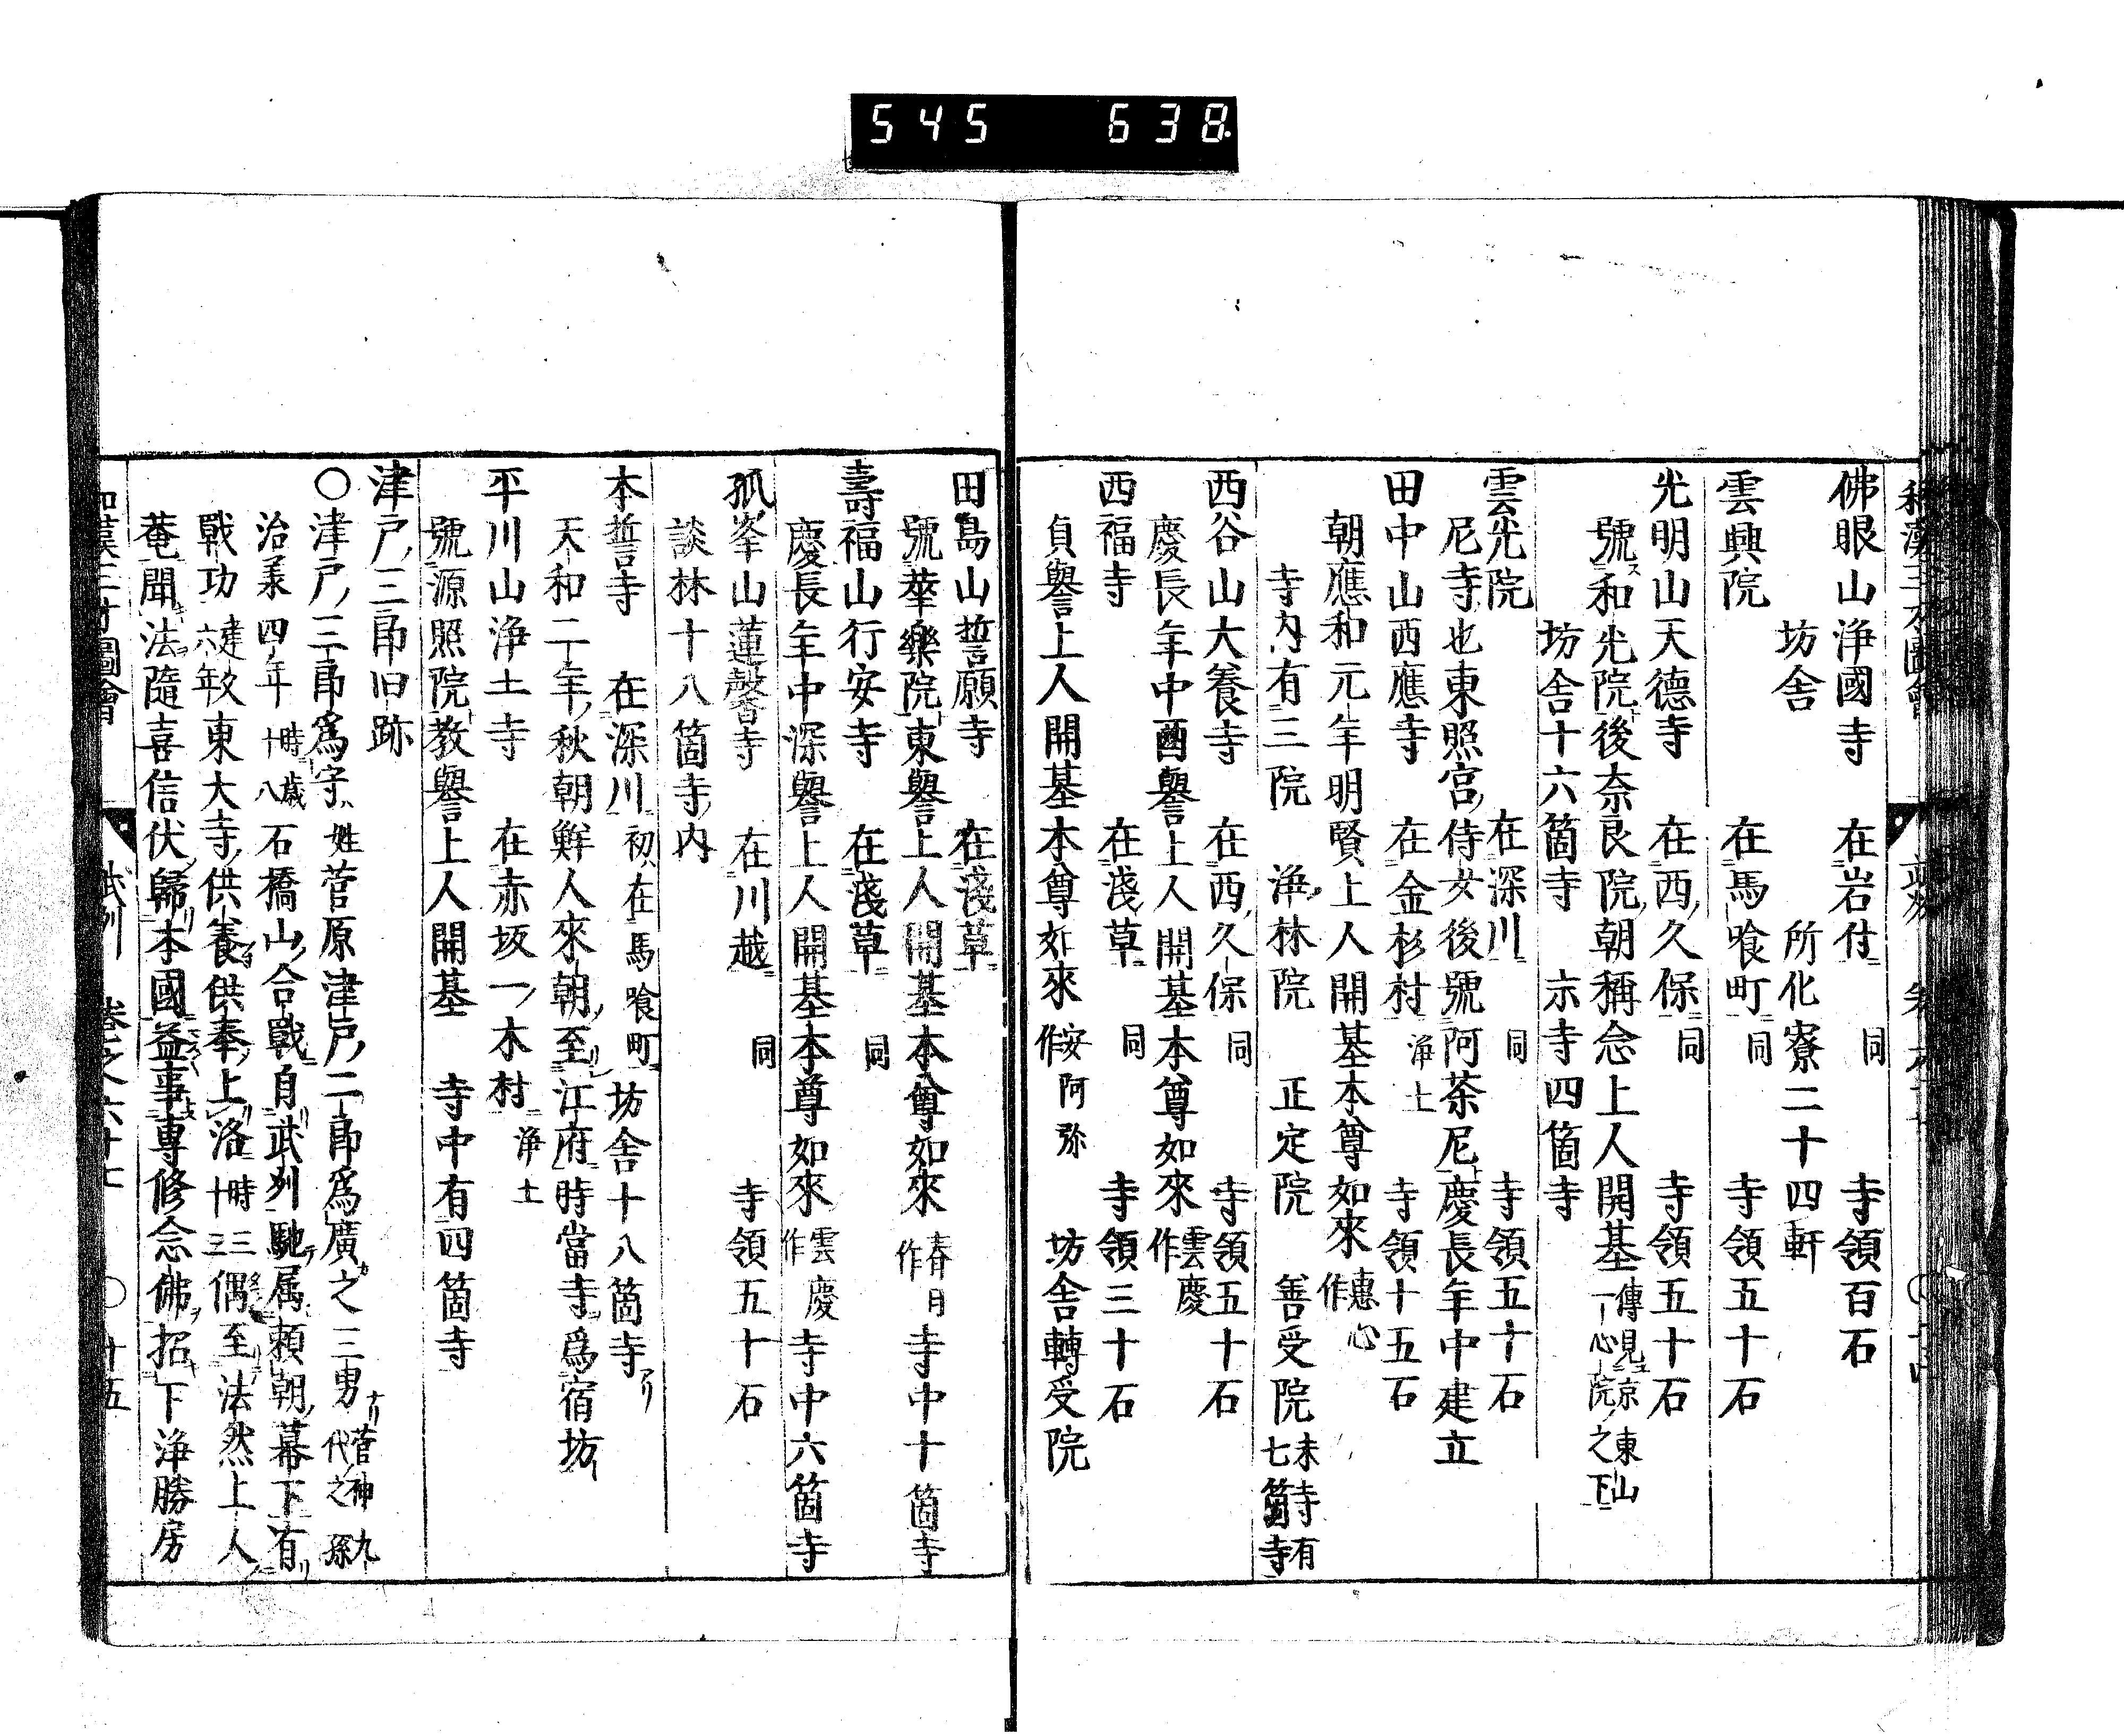 545 638
佛眼山浄國寺 在岩付 同 寺領百石
坊舎 所化寮二十四軒
雲興院 在馬喰町 同 寺領五十石
光明山天德寺 在西久保 同 寺領五十石
號和光院後奈良院朝稱念上人開基 傳見京東山一心院之下
坊舎十六箇寺 末寺四箇寺
雲光院 在深川 同 寺領五十石
尼寺也東照宮侍女後號阿茶尼慶長年中建立
田中山西應寺 在金杉村 浄土 寺領十五石
朝應和元年明賢上人開基本尊如來 惠心作
寺内有三院 浄林院 正定院 善受院 末寺有七箇寺
西谷山大養寺 在西久保 同 寺領五十石
慶長年中酉譽上人開基本尊如來 雲慶作
西福寺 在淺草 同 寺領三十石
貞譽上人開基本尊如來 安阿弥作 坊舎轉受院
田島山誓願寺 在淺草
號華樂院東譽上人開基本尊如來 春日作 寺中十箇寺
壽福山行安寺 在淺草 同
慶長年中深譽上人開基本尊如來 雲慶作 寺中六箇寺
孤峯山蓮馨寺 在川越 同 寺領五十石
談林十八箇寺内
本誓寺 在深川 初在馬喰町 坊舎十八箇寺
天和二年秋朝鮮人來朝至江府時當寺爲宿坊
平川山浄土寺 在赤坂一木村 浄土
號源照院教譽上人開基 寺中有四箇寺
津戸三郎旧跡
〇津戸三郎爲守 姓菅原津戸二郎爲廣之三男 菅神九代之孫
治承四年 時十八歳 石橋山合戰自武州馳属賴朝幕下有
戰功 建久六年 東大寺供養供奉上洛 時三十三 偶至法然上人
菴聞法隨喜信伏歸本國益事專修念佛招下浄勝房
和漢三才圖會 武州 卷之六十七 〇十五